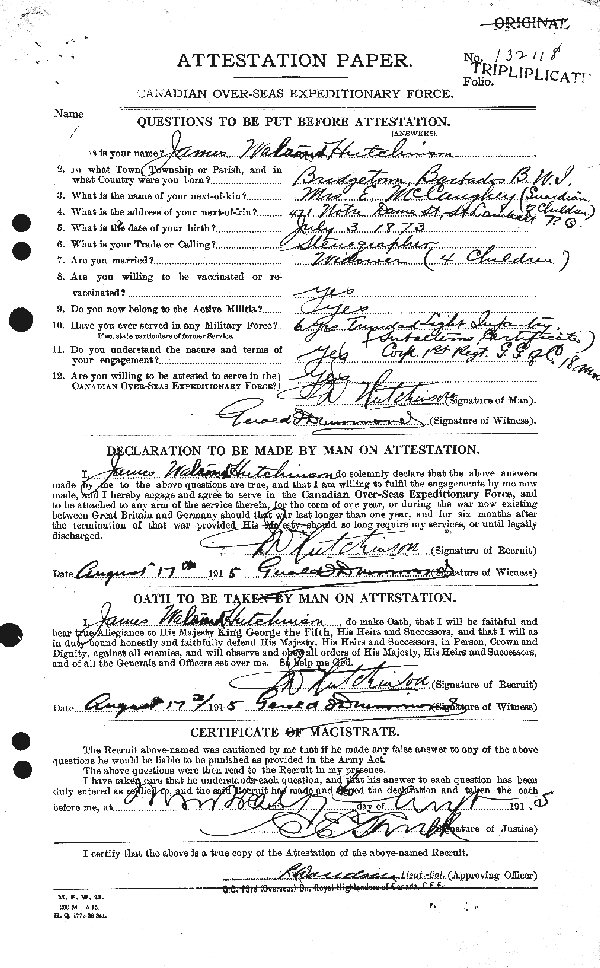 ORIGINAL
ATTESTATION PAPER.
No. 132118
TRIPLIPLICATE
Folio.
CANADIAN OVER-SEAS EXPEDITIONARY FORCE.
Name
QUESTIONS TO BE PUT BEFORE ATTESTATION.
(ANSWERS)
is your name? James Hutchinson
2. In what Town, Township or Parish, and in
what Country were you born? Bridgetown, Barbados B.W.I.
3. What is the name of your next-of-kin? Mrs. E. McCaughey (Guardian
4. What is the address of your next-of-kin? 491 Notre Dame St. Children) P.Q.
5. What is the date of your birth? July 3 1873
6. What is your Trade or Calling? Stenographer
7. Are you married? Widower (4 Children)
8. Are you willing to be vaccinated or re-
vaccinated? yes
9. Do you now belong to the Active Militia? yes
10. Have you ever served in any Military Force? 6 yrs Trinidad Light Infantry
If so, state particulars of former Service. Certificate)
11. Do you understand the nature and terms of
your engagement? yes Corp 1st Regt. 18 mos
12. Are you willing to be attested to serve in the
CANADIAN OVER-SEAS EXPEDITIONARY FORCE? Yes
Hutchinson (Signature of Man).
Gerald Drummond (Signature of Witness).
DECLARATION TO BE MADE BY MAN ON ATTESTATION.
I, James Hutchinson do solemnly declare that the above answers
made by me to the above questions are true, and that I am willing to fulfil the engagements by me now
made, and I hereby engage and agree to serve in the Canadian Over-Seas Expeditionary Force, and
to be attached to any arm of the service therein, for the term of one year, or during the war now existing
between Great Britain and Germany should that war last longer than one year, and for six months after
the termination of that war provided His Majesty should so long require my services, or until legally
discharged.
Hutchinson (Signature of Recruit)
Date August 17th 1915 Gerald Drummond (Signature of Witness)
OATH TO BE TAKEN BY MAN ON ATTESTATION.
I, James Hutchinson do make Oath, that I will be faithful and
bear true Allegiance to His Majesty King George the Fifth, His Heirs and Successors, and that I will as
in duty bound honestly and faithfully defend His Majesty, His Heirs and Successors, in Person, Crown and
Dignity, against all enemies, and will observe and obey all orders of His Majesty, His Heirs and Successors,
and of all the Generals and Officers set over me. So help me God.
Hutchinson (Signature of Recruit)
Date August 17 1915 Gerald Drummond (Signature of Witness)
CERTIFICATE OF MAGISTRATE.
The Recruit above-named was cautioned by me that if he made any false answer to any of the above
questions he would be liable to be punished as provided in the Army Act.
The above questions were then read to the Recruit in my presence.
I have taken care that he understands each question, and that his answer to each question has been
duly entered as replied to, and the said Recruit has made and signed the declaration and taken the oath
before me, at day of 1915
(Signature of Justice)
I certify that the above is a true copy of the Attestation of the above-named Recruit.
Lieut-Col. (Approving Officer)
O.C. 73rd (Overseas) Bn., Royal Highlanders of Canada, C.E.F.